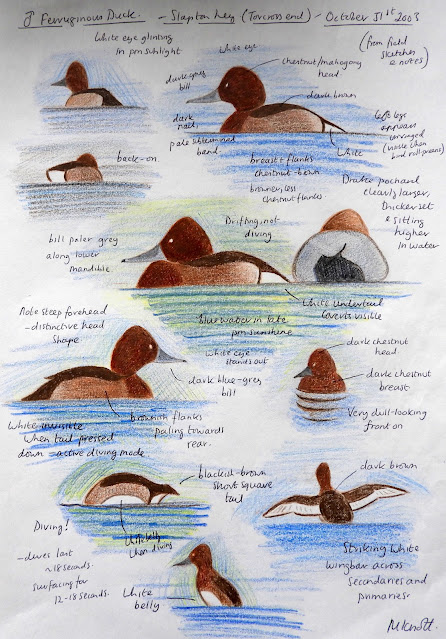 ♂ Ferruginous Duck. - Slapton Ley (Torcross end) - October 31st 2003
White eye glinting
in pm sunlight
White eye
(from field
sketches
& notes)
chestnut/mahogany
head
dark grey
bill
dark brown
dark
nail,
pale subterminal
band
left leg
appears
(visible when
bird roll-preens)
White
back-on
breast & flanks
chestnut-brown
browner, less
chestnut flanks
Drake pochard
clearly larger,
thicker set
& sitting
higher
in water
Drifting, not
diving
bill paler grey
along lower
mandible
White undertail
coverts visible
Blue water in late
pm sunshine
Note steep forehead
- distinctive head
shape
White eye
stands out
dark chestnut
head
dark blue-grey
bill
dark chestnut
breast
Very dull-looking
front on
White invisible
when tail pressed
down - active diving mode
brownish flanks
paling towards
rear.
blackish-brown
short square
tail
dark brown
Diving!
White belly
when diving
- dives last
~18 seconds.
surfacing for
12-18 seconds.
White
belly
Striking white
wingbar across
secondaries and
primaries.